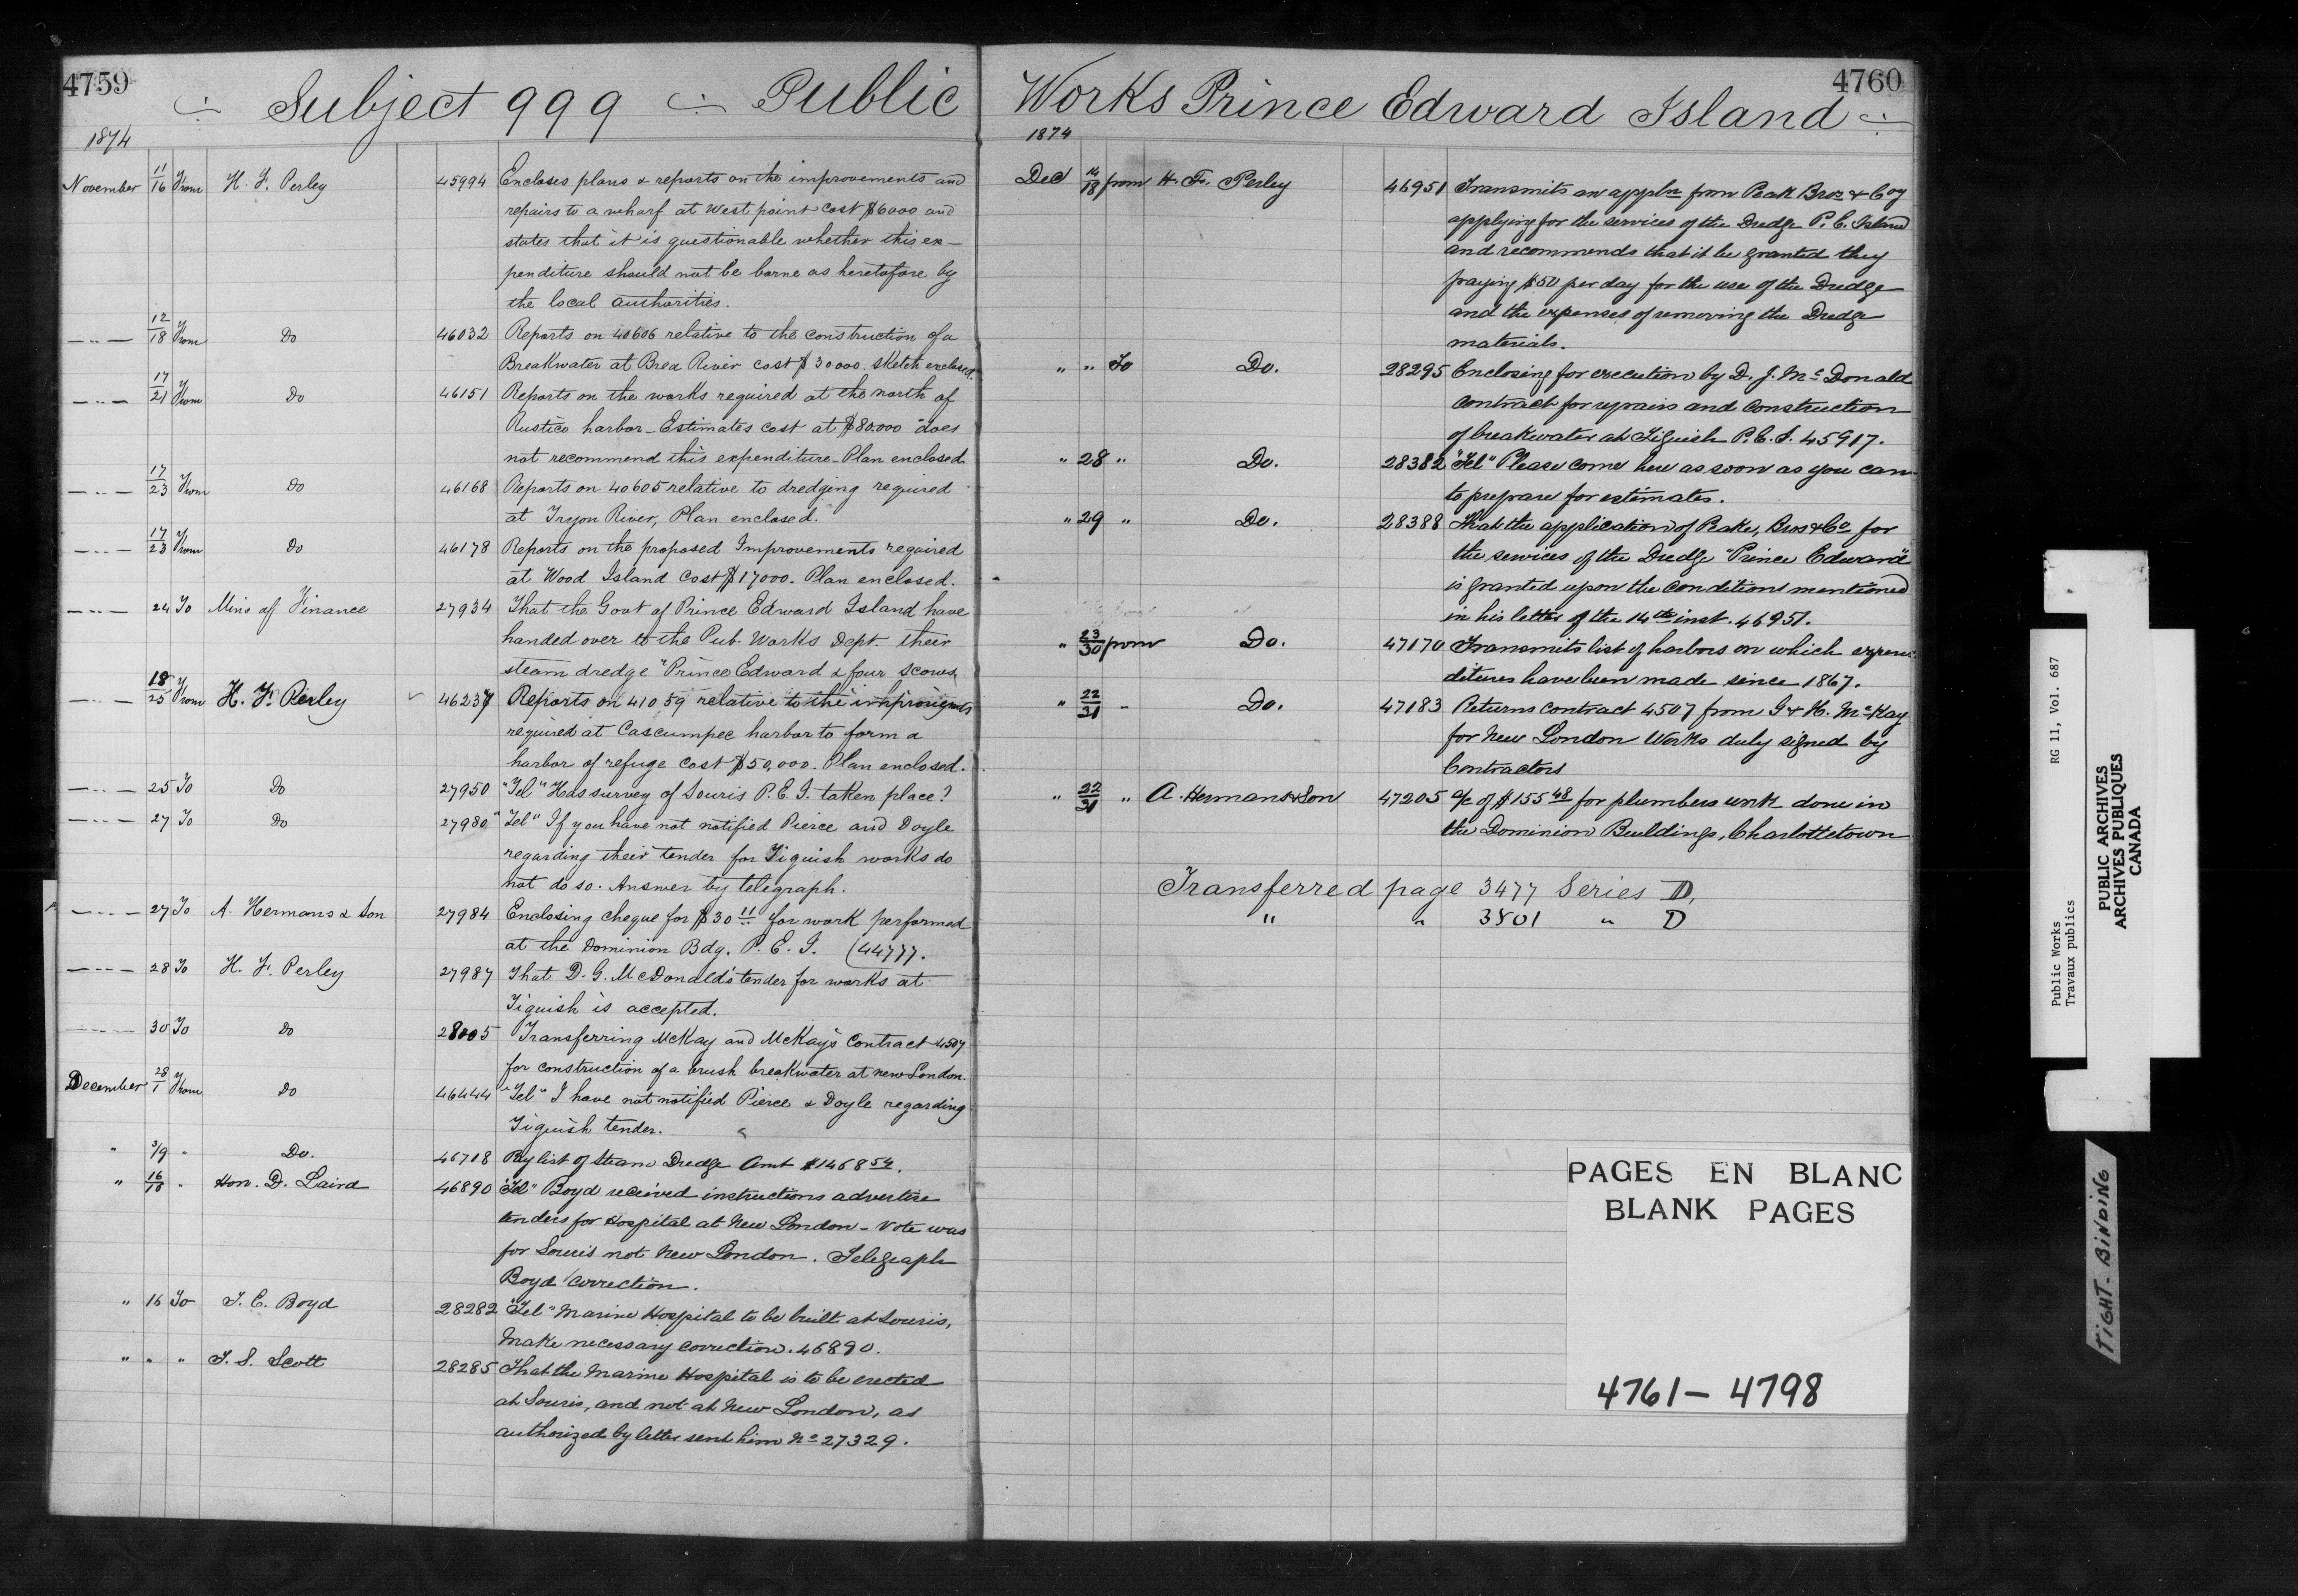 4759
Subject 999 Public
1874
November 11/16 From H. F. Perley 45994 Encloses plans & reports on the improvements and
repairs to a wharf at West point cost $6000 and
states that it is questionable whether this ex-
penditure should not be borne as heretofore by
the local authorities.
12/18 From Do 46032 Reports on 40606 relative to the construction of a
Breakwater at Brea River cost $30000. Sketch enclosed.
17/21 From Do 46151 Reports on the works required at the north of
Rustico harbor - Estimates cost at $80.000 does
not recommend this expenditure - Plan enclosed
17/23 From Do 46168 Reports on 40605 relative to dredging required
at Tryon River, Plan enclosed.
17/23 From Do 46178 Reports on the proposed Improvements required
at Wood Island cost $17000. Plan enclosed.
24 To Mins of Finance 27934 That the Govt of Prince Edward Island have
handed over to the Pub. Works Dept. their
steam dredge "Prince Edward & four scows.
18/25 From H. F. Perley 46237 Reports on 41059 relative to the
required at Cascumpec harbor to form a
harbor of refuge cost $50,000. Plan enclosed.
25 To Do 27950 "Tel" Has survey of Souris P. E. I. taken place?
27 To Do 27980 "Tel" If you have not notified Pierce and Doyle
regarding their tender for Tiguish works do
not do so. Answer by telegraph.
27 To A. Hermans & Son 27984 Enclosing cheque for $30 11 for work performed
at the Dominion Bdg. P. E. I. (44777.
28 To H. F. Perley 27987 That D. G. McDonald's tender for works at
Tiguish is accepted.
30 To Do 28005 Transferring McKay and McKay's Contract 4507
for construction of a brush breakwater at new London.
December 28/1 From Do 46444 "Tel" I have not notified Pierce & Doyle regarding
Tiguish tender.
" 3/9 " Do. 46718 Pay list of Steam Dredge Amt $1468 54.
" 16/18 " Hon. D. Laird 46890 "Tel" Boyd received instructions advertise
tenders for Hospital at New London - Vote was
for Souris not New London. Telegraph
Boyd correction.
" 16 To J. E. Boyd 28282 "Tel" Marine Hospital to be built at Souris,
Make necessary correction. 46890.
" " " T. S. Scott 28285 That the Marine Hospital is to be erected
at Souris, and not at New London, as
authorized by letter sent him No 27329.
4760
Works Prince Edward Island
1874
Dec 14/18 from H. F. Perley 46951 Transmits an appln from Peak Bros & Coy
applying for the services of the Dredge P. E. Island
and recommends that it be granted they
paying $50 per day for the use of the Dredge
and the expenses of removing the Dredge
materials.
" " To Do. 28295 Enclosing for execution by D. J. McDonald
contract for repairs and construction
of breakwater at Tiguish P. E. I. 45917.
" 28 " Do. 28382 "Tel" Please come here as soon as you can
to prepare for estimates.
" 29 " Do. 28388 That the application of Peake, Bros & Co for
the services of the Dredge "Prince Edward"
is granted upon the conditions mentioned
in his letter of the 14th inst. 46951.
" 23/30 from Do. 47170 Transmits list of harbors on which expen-
ditures have been made since 1867.
" 22/31 - Do. 47183 Returns contract 4507 from G & H. McKay
for New London Works duly signed by
Contractors
" 22/31 " A. Hermans & Son 47205 a/c of $155 48 for plumbers work done in
the Dominion Buildings, Charlottetown
Transferred page 3477 Series D,
" " 3801 " D
PAGES EN BLANC
BLANK PAGES
4761 - 4798
Public Works
Travaux publics
RG 11, Vol. 687
PUBLIC ARCHIVES
ARCHIVES PUBLIQUES
CANADA
TIGHT-BINDING